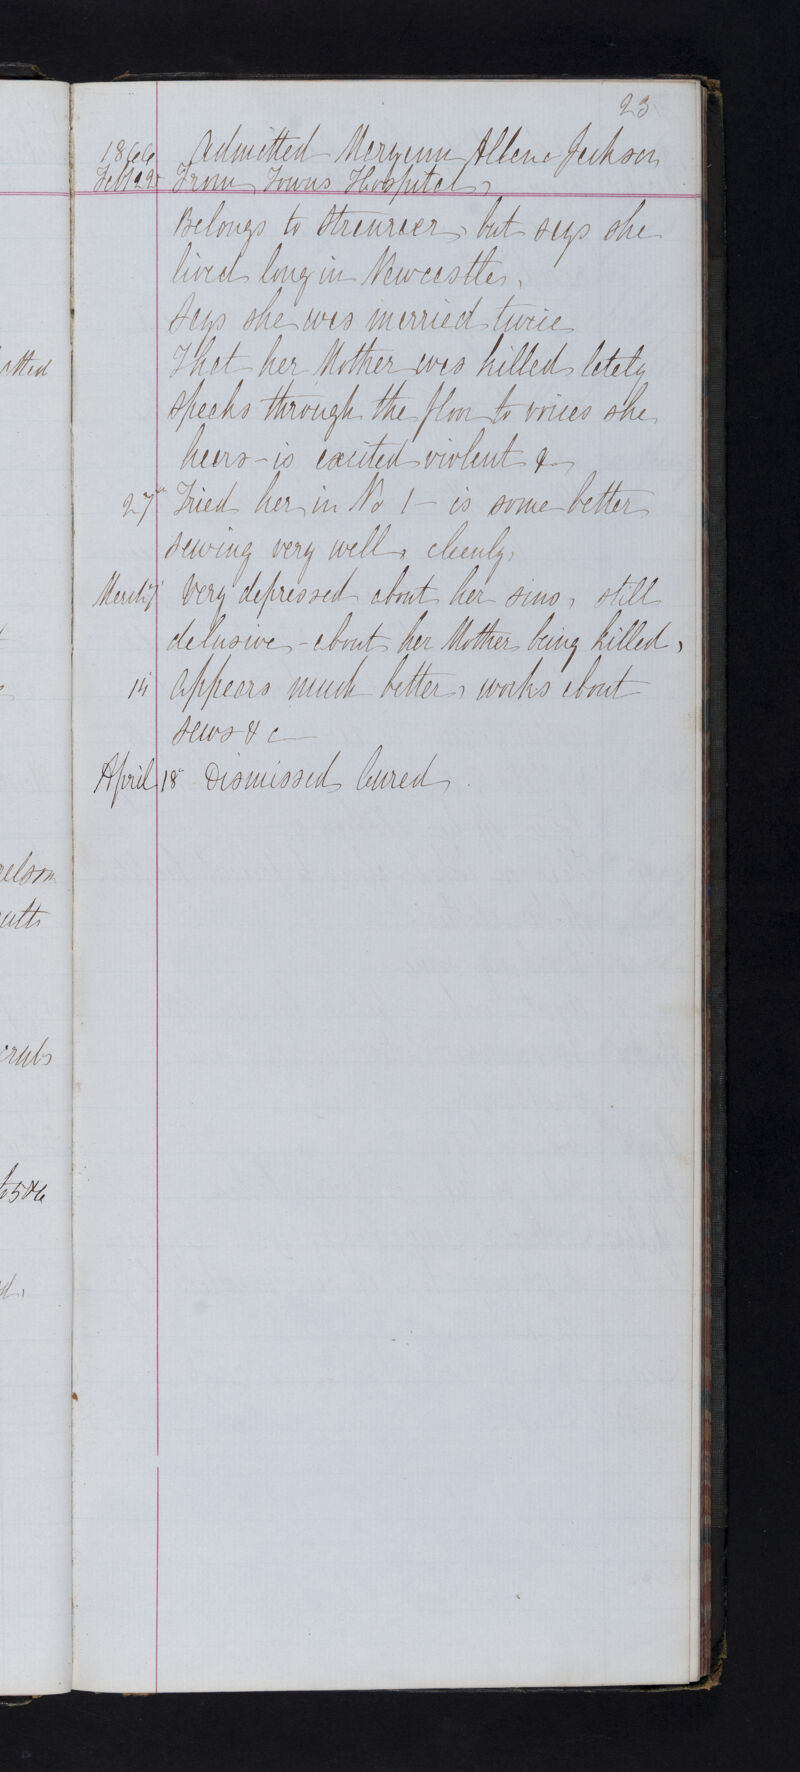 23
1866 Admitted Maryann Allen Jackson
Feby 22 From Towns Hospital,
Belongs to Stranraer, but says she
lived long in Newcastle,
Says she was married twice
That her Mother was killed lately
Speaks through the floor to voices she
hears - is excited violent &
27 Tried her in No 1 - is some better
sewing very well, cleanly,
March 7 Very depressed about her sins, still
delusive - about her Mother being killed,
14 Appears much better, works about
sews & c
April 18 Dismissed Cured